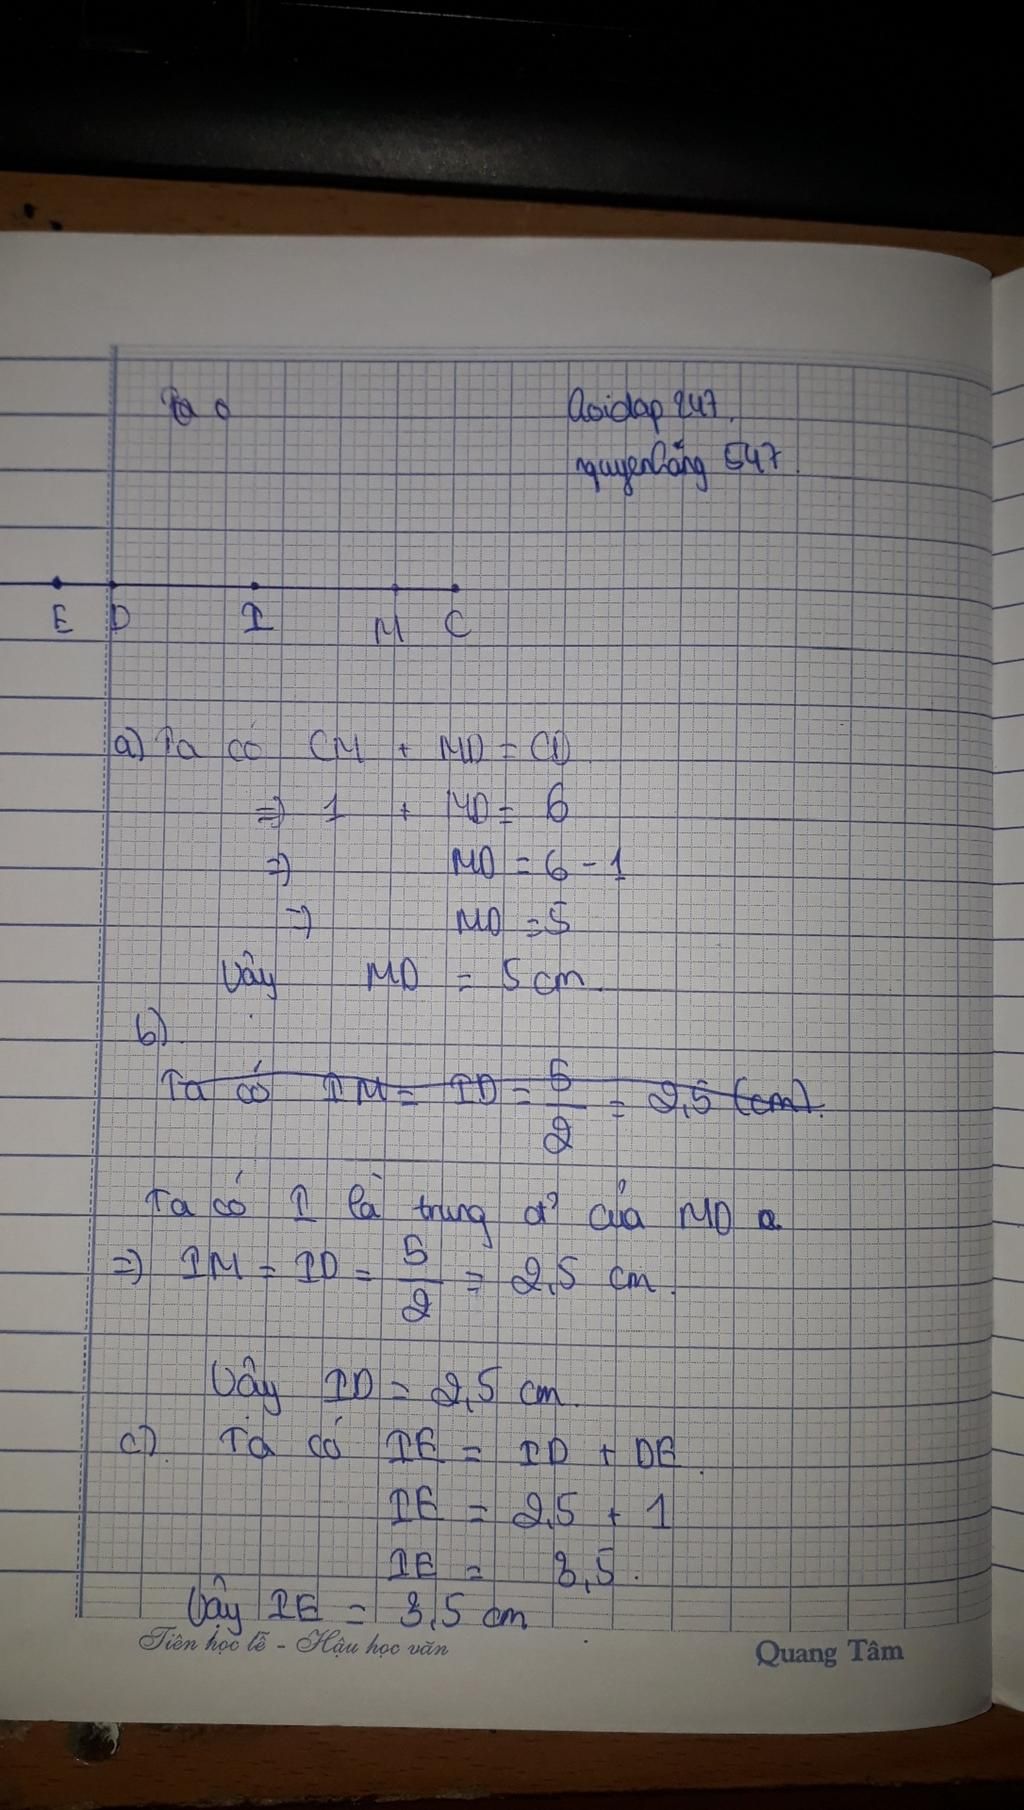 Ta c
hoidap 247.
nguyenhằng 547
E D I M C
a) Ta có CM + MD = CD
=> 1 + MD = 6
=> MD = 6 - 1
=> MD = 5
Vậy MD = 5 cm.
b)
Ta có IM = ID = 5/2 = 2,5 (cm).
Ta có I là trung đ' của MD
=> IM = ID = 5/2 = 2,5 cm.
Vậy ID = 2,5 cm.
c) Ta có IE = ID + DE.
IE = 2,5 + 1
IE = 3,5.
Vậy IE = 3,5 cm
Tiên học lễ - Hậu học văn
Quang Tâm